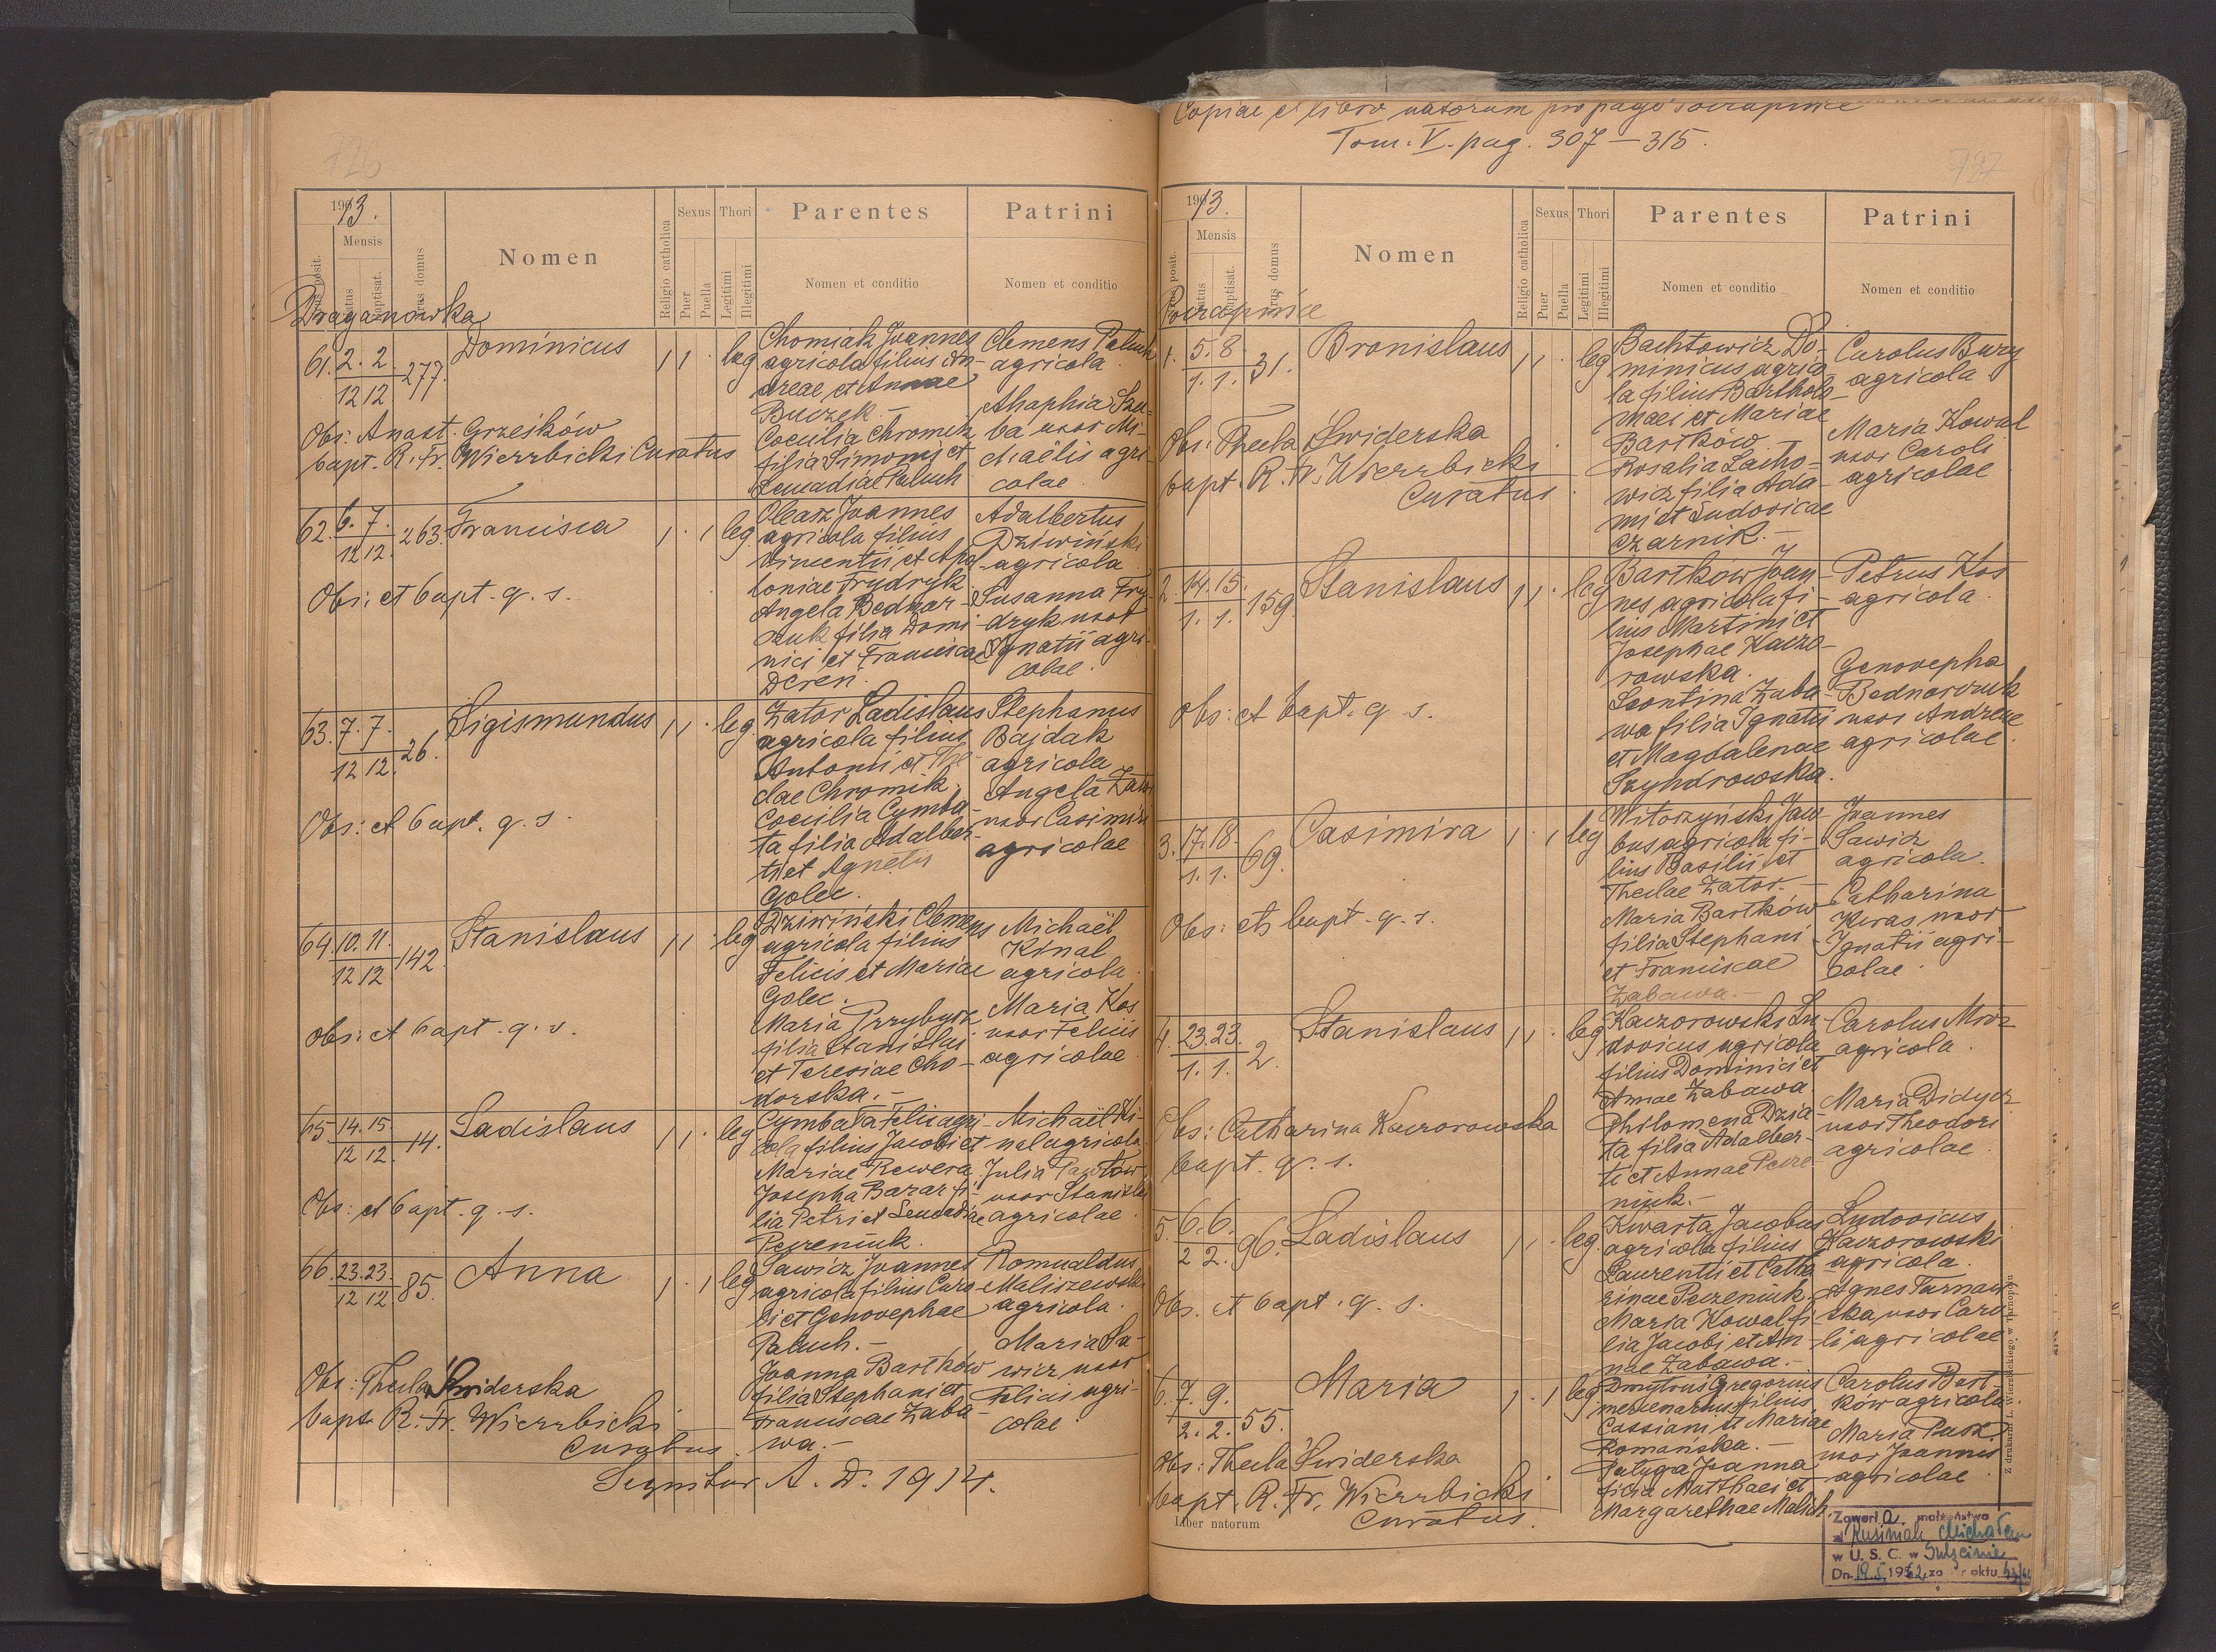 726
1913.
Nrus posit.
Mensis
Natus
Baptisat.
Nrus domus
Nomen
Religio catholica
Sexus
Puer
Puella
Thori
Legitimi
Illegitimi
Parentes
Nomen et conditio
Patrini
Nomen et conditio
Draganówka
61. 2. 2. 277. Dominicus 1 1 . leg
12 12
Chomiak Joannes
agricola filius An-
dreae et Annae
Buczek. —
Coecilia Chromik
filia Simonis et
Leucadiae Paluch
Clemens Paluch
agricola
Ahaphia Szu-
ba uxor Mi-
chaëlis agri-
colae.
Obs: Anast. Grzeslków
bapt. R. Fr. Wierzbicki Curatus
62. 6. 7. 263. Francisca 1 . 1 leg.
12 12.
Olearz Joannes
agricola filius
Vincentii et Apo-
loniae Frydryk
Angela Bednar-
czuk filia Domi-
nici et Franciscae
Dereń.
Adalbertus
Dziwiński
agricola
Susanna Fry-
dryk uxor
Ignatii agri-
colae.
Obs: et bapt. q. s.
63. 7. 7. 26. Sigismundus 1 1 . leg.
12 12.
Zator Ladislaus
agricola filius
Antonii et The-
clae Chromik
Coecilia Cymba-
ta filia Adalber-
ti et Agnetis
Golec.
Stephanus
Bajdak
agricola
Angela Zator
uxor Casimiri
agricolae
Obs: et bapt. q. s.
64. 10. 11. 142. Stanislaus 1 1 . leg
12 12
Dziwiński Clemens
agricola filius
Felicis et Mariae
Golec.
Maria Przybysz
filia Stanislai
et Teresiae Cho-
dorska. —
Michaël
Kinal
agricola
Maria Kos
uxor Felicis
agricolae
Obs: et bapt. q. s.
65. 14. 15. 14. Ladislaus 1 1 . leg
12 12.
Cymbata Felix agri-
cola filius Jacobi et
Mariae Rewera,
Josepha Barar fi-
lia Petri et Leucadiae
Peczeniuk.
Michaël Ki-
nal agricola
Julia
uxor Stanislai
agricolae
Obs: et bapt. q. s.
66. 23. 23. 85. Anna 1 . 1 leg
12 12
Sawicz Joannes
agricola filius Caro-
li et Genovephae
Paluch. —
Joanna Bartków
filia Stephani et
Franciscae Zaba-
wa. —
Romualdus
Maliszewski
agricola.
Maria Sa-
wicz, uxor
Felicis agri-
colae.
Obs: Thecla Świderska
bapt. R. Fr. Wierzbicki
Curatus.
Sequitur A. D. 1914.
Copiae e libro natorum pro pago Poczapińce
Tom. V. pag. 307 — 315.
727
1913.
Nrus posit.
Mensis
Natus
Baptisat.
Nrus domus
Nomen
Religio catholica
Sexus
Puer
Puella
Thori
Legitimi
Illegitimi
Parentes
Nomen et conditio
Patrini
Nomen et conditio
Poczapińce
1. 5. 8. 31. Bronislaus 1 1 . leg
1. 1.
Bachtowicz Do-
minicus agrico-
la filius Bartholo-
maei et Mariae
Bartków
Rosalia Lacho-
wicz filia Ada-
mi et Ludovicae
Czarnik. —
Carolus Bury
agricola
Maria Kowal
uxor Caroli
agricolae
Obs: Thecla Świderska
bapt. R. Fr. Wierzbicki
Curatus.
2. 14. 15. 159. Stanislaus 1 1 . leg
1. 1.
Bartków Joan-
nes agricola fi-
lius Martini et
Josephae Kaczo-
rowska.
Leontina Zaba-
wa filia Ignatii
et Magdalenae
Szyndrowska.
Petrus Kos
agricola.
Genovepha
Bednarczuk
uxor Andreae
agricolae.
Obs: et bapt. q. s.
3. 17. 18. 69. Casimira 1 . 1 leg
1. 1.
Witoszyński Jaco-
bus agricola fi-
lius Basilii et
Theclae Zator. —
Maria Bartków
filia Stephani
et Franciscae
Zabawa. —
Joannes
Sawicz
agricola.
Catharina
Kwas, uxor
Ignatii agri-
colae.
Obs: et bapt. q. s.
4. 23. 23. 2. Stanislaus 1 1 . leg
1. 1.
Kaczorowski Lu-
dovicus agricola
filius Dominici et
Annae Zabawa
Philomena Dzia-
ta filia Adalber-
ti et Annae Pecze-
niuk. —
Carolus Mroz
agricola.
Maria Didycz
uxor Theodori
agricolae
Obs: Catharina Kaczorowska
bapt. q. s.
5. 6. 6. 96. Ladislaus 1 1 . leg.
2 2.
Kwarta Jacobus
agricola filius
Laurentii et Catha-
rinae Peczeniuk.
Maria Kowal fi-
lia Jacobi et An-
nae Zabawa. —
Ludovicus
Kaczorowski
agricola.
Agnes Turnaw-
ska, uxor Caro-
li agricolae
Obs. et bapt. q. s.
6. 7. 9. 55. Maria 1 . 1 leg
2. 2.
Dmytrus Gregorius
mercenarius filius
Cassiani et Mariae
Romańska. —
Patyga Joanna
filia Matthaei et
Margarethae Malich.
Carolus Bart-
ków agricola
Maria
uxor Joannis
agricolae
Obs: Thecla Świderska
bapt. R. Fr. Wierzbicki
Curatus.
Liber natorum
Z drukarni L. Wierzbickiego w Tarnopolu
Zawarł a małżeństwo
z Kuśmak Michałem
w U. S. C. w
Dn. 19. 5. 1962 za nr aktu